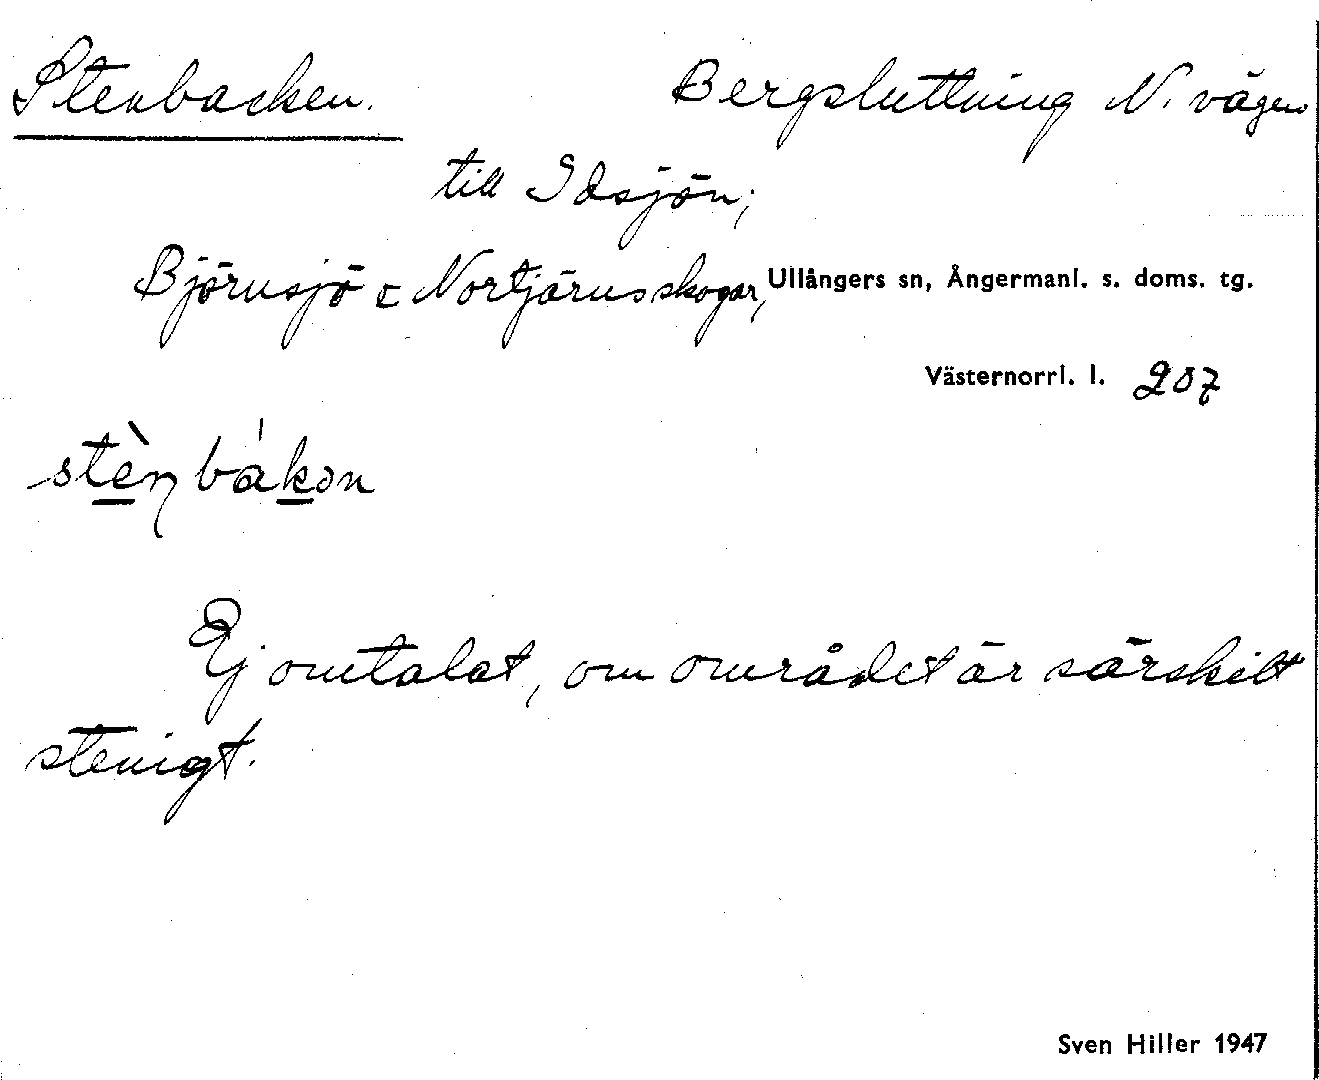 Stenbacken. Bergsluttning N. vägen
till Idsjön;
Björnsjö o Nortjärns skogar, Ullångers sn, Ångermanl. s. doms. tg.
Västernorrl. l. 207
stèn bákən
Ej omtalat, om området är särskilt
stenigt.
Sven Hiller 1947